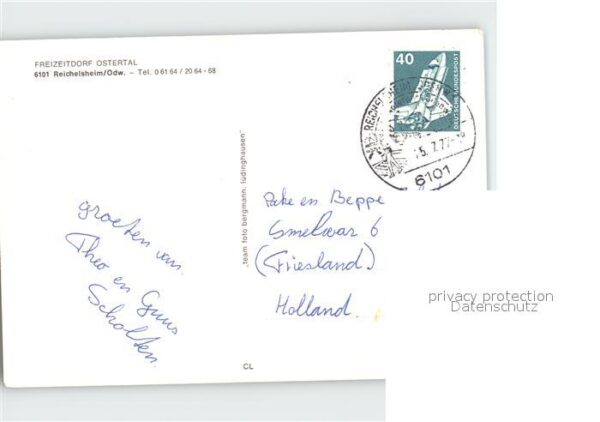 FREIZEITDORF OSTERTAL
6101 Reichelsheim/Odw. – Tel. 0 61 64 / 20 64 - 68
40
DEUTSCHE BUNDESPOST
REICHELSHEIM
5. 7. 77
6101
"team foto bergmann, lüdinghausen"
groeten van.
Theo en Guus
Scholten.
en Beppe
6
(Friesland)
Holland.
CL
privacy protection
Datenschutz